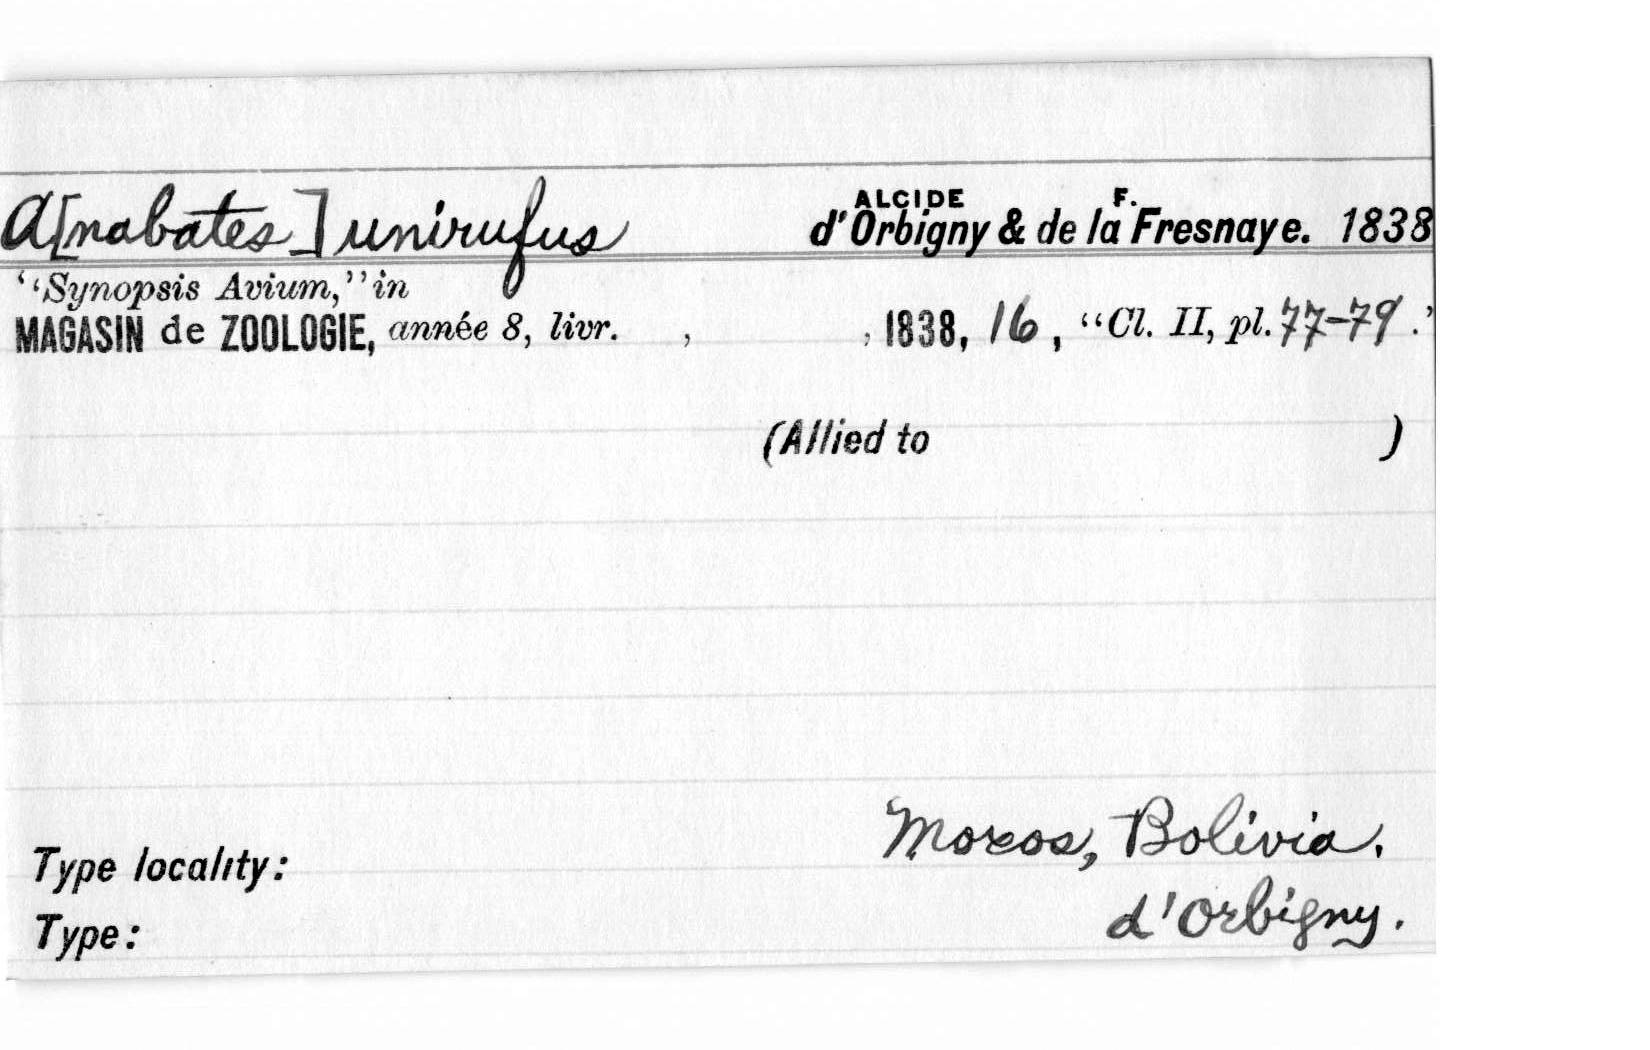 A[nabates] unirufus ALCIDE d'Orbigny & de la F. Fresnaye. 1838
"Synopsis Avium," in
MAGASIN de ZOOLOGIE, année 8, livr. , , 1838, 16, "Cl. II, pl. 77-79."
(Allied to )
Moxos, Bolivia.
Type locality:
d'Orbigny.
Type: